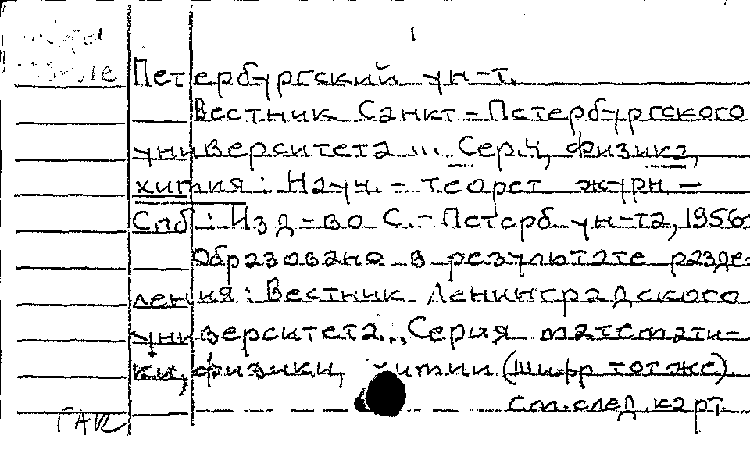 1
Петербургский ун-т.
Вестник Санкт-Петербургского
университета ... Сер.4, физика,
химия : Науч.-теорет журн. –
Спб : Изд-во С.-Петерб. ун-та, 1956-
Образована в результате разде-
ления : Вестник Ленинградского
университета... Серия математи-
ки, физики, химии (шифр тот же)
см. след. карт.
ГАК